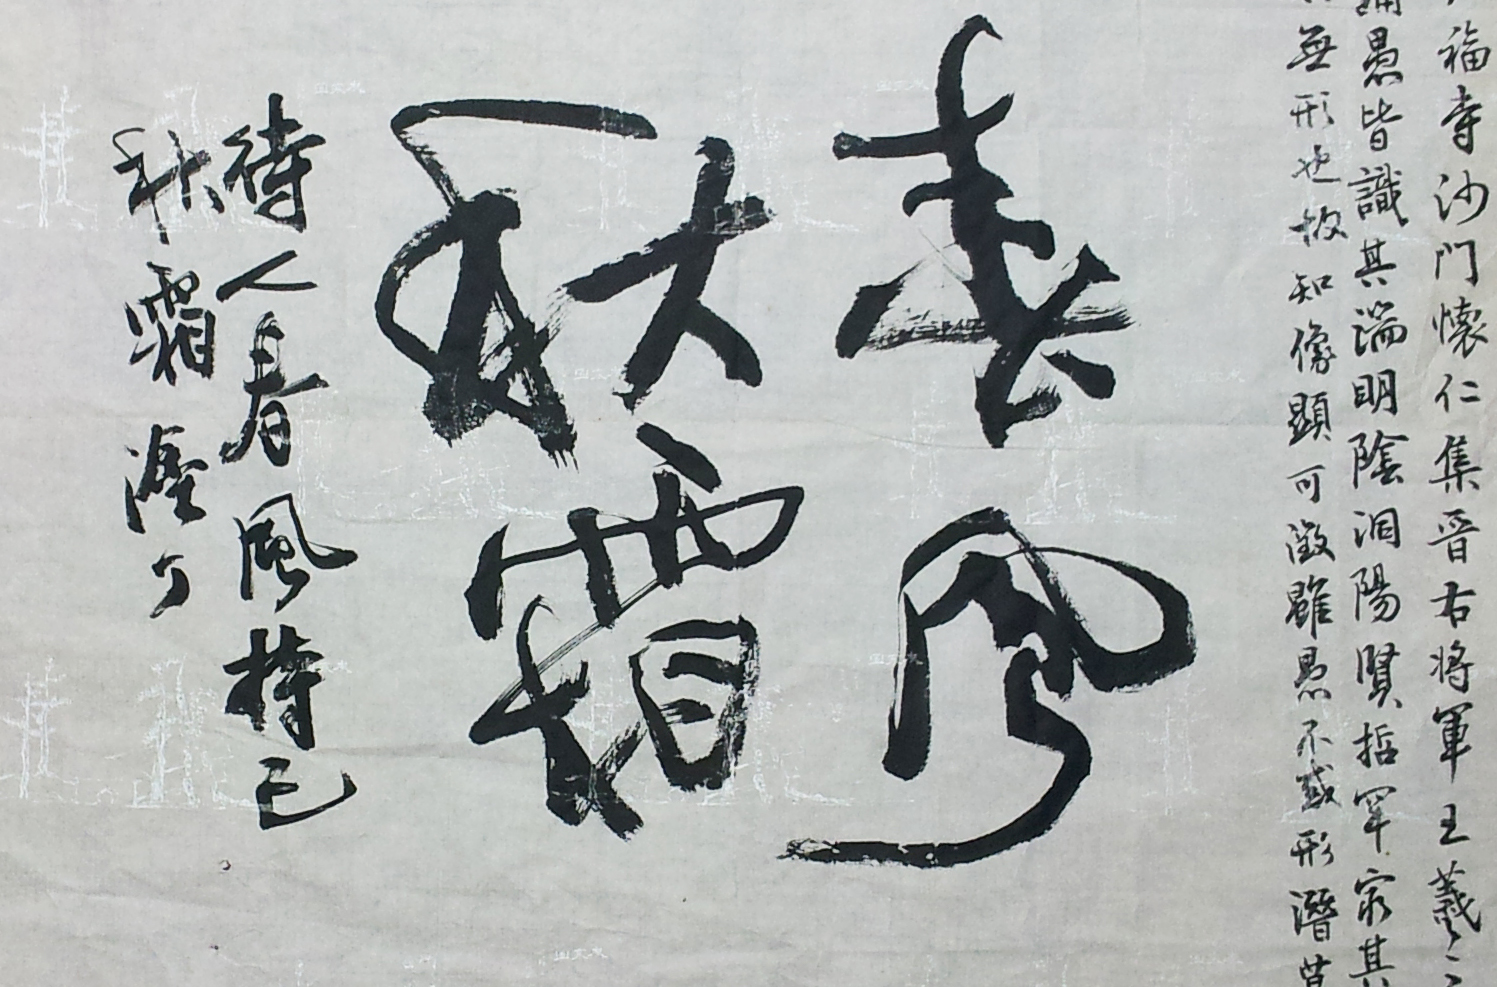 福寺沙門懷仁集晉右将軍王羲之
愚皆識其端明陰洞陽賢哲罕窮其
無形也故知像顯可徵雖愚不惑形潛莫
春風
秋霜
待人春風持己
秋霜